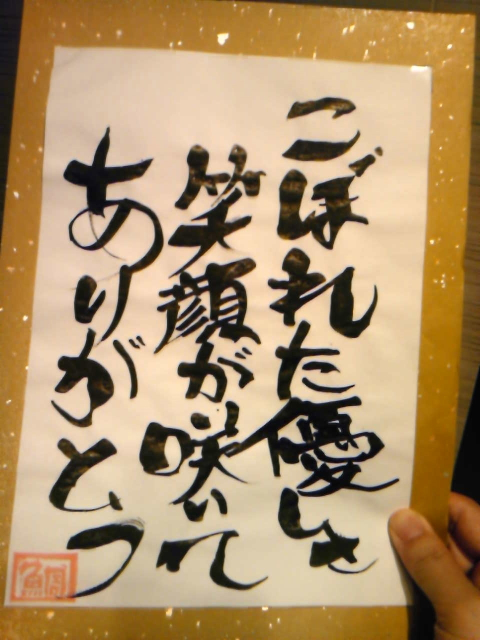 こぼれた優しさ
笑顔が咲いて
ありがとう